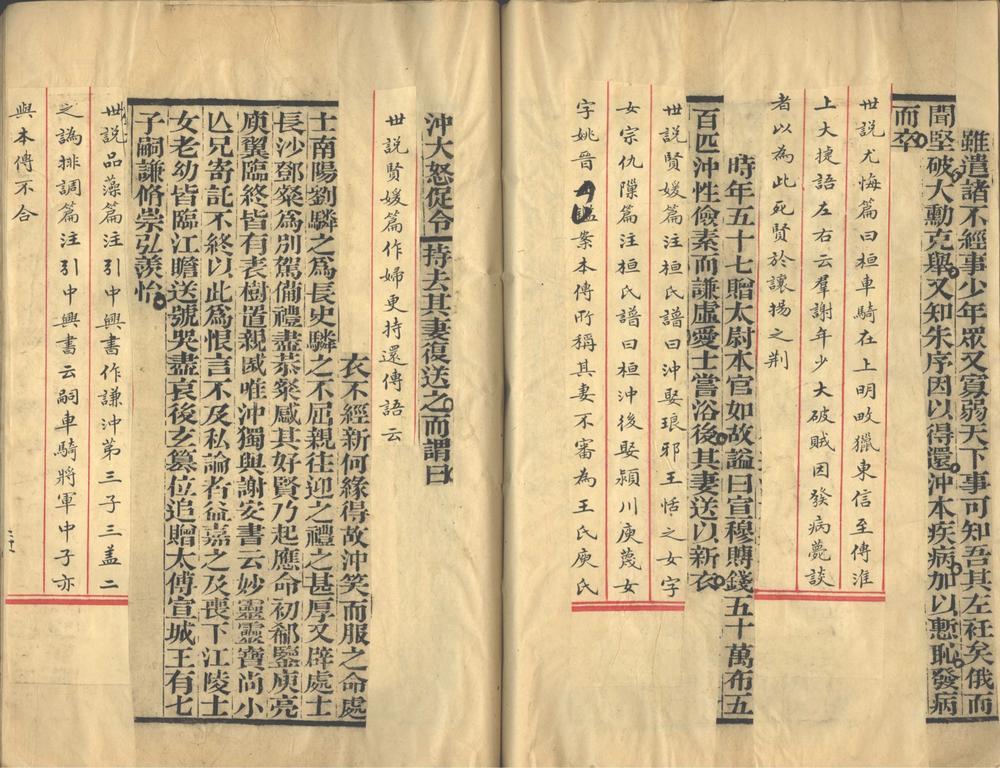 雖遣諸不經事少年眾又寡弱天下事可知吾其左衽矣俄而
聞堅破大勳克舉又知朱序因以得還沖本疾病加以慙恥發病
而卒
世説尤悔篇曰桓車騎在上明畋獵東信至傳淮
上大捷語左右云羣謝年少大破賊因發病薨談
者以為此死賢於讓揚之荆
時年五十七贈太尉本官如故謚曰宣穆賻錢五十萬布五
百匹沖性儉素而謙虛愛士嘗浴後其妻送以新衣
世説賢媛篇注桓氏譜曰沖娶琅邪王恬之女字
女宗仇隟篇注桓氏譜曰桓沖後娶潁川庾蔑女
字姚晉案本傳所稱其妻不審為王氏庾氏
沖大怒促令持去其妻復送之而謂曰
世説賢媛篇作婦更持還傳語云
衣不經新何緣得故沖笑而服之命處
士南陽劉驎之為長史驎之不屈親往迎之禮之甚厚又辟處士
長沙鄧粲爲別駕備禮盡恭粲感其好賢乃起應命初郗鑒庾亮
庾翼臨終皆有表樹置親戚唯沖獨與謝安書云妙靈靈寶尚小
亾兄寄託不終以此爲恨言不及私論者益嘉之及喪下江陵士
女老幼皆臨江瞻送號哭盡哀後玄篡位追贈太傅宣城王有七
子嗣謙脩崇弘羨怡
世説品藻篇注引中興書作謙沖第三子三盖二
之譌排調篇注引中興書云嗣車騎將軍中子亦
與本傳不合